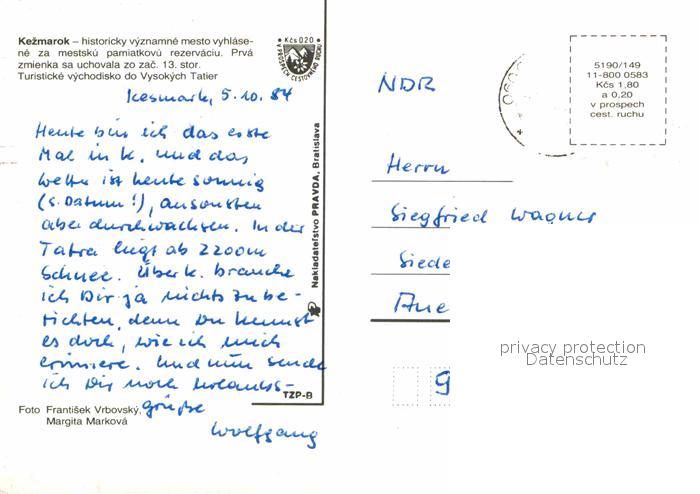 Kežmarok – historicky významné mesto vyhláse-
né za mestskú pamiatkovú rezerváciu. Prvá
zmienka sa uchovala zo zač. 13. stor.
Turistické východisko do Vysokých Tatier
Kčs 0,20
A PROSPECH CESTOVNÉHO RUCHU
Kesmark, 5.10.84
Heute bin ich das erste
Mal in K. und das
Wetter ist heute sonnig
(s. Datum!), ansonsten
aber durchwachsen. In der
Tatra liegt ab 2200m
Schnee. Über K. brauche
ich Dir ja nichts zu be-
richten, denn Du kennst
es doch, wie ich mich
erinnere. Und nun sende
ich Dir noch Urlaubs-
grüße
Wolfgang
Foto František Vrbovský,
Margita Marková
Nakladateľstvo PRAVDA, Bratislava
TZP-B
NDR
5190/149
11-800 0583
Kčs 1,80
a 0,20
v prospech
cest. ruchu
Herrn
Siegfried Wagner
Siede
Aue
9
privacy protection
Datenschutz